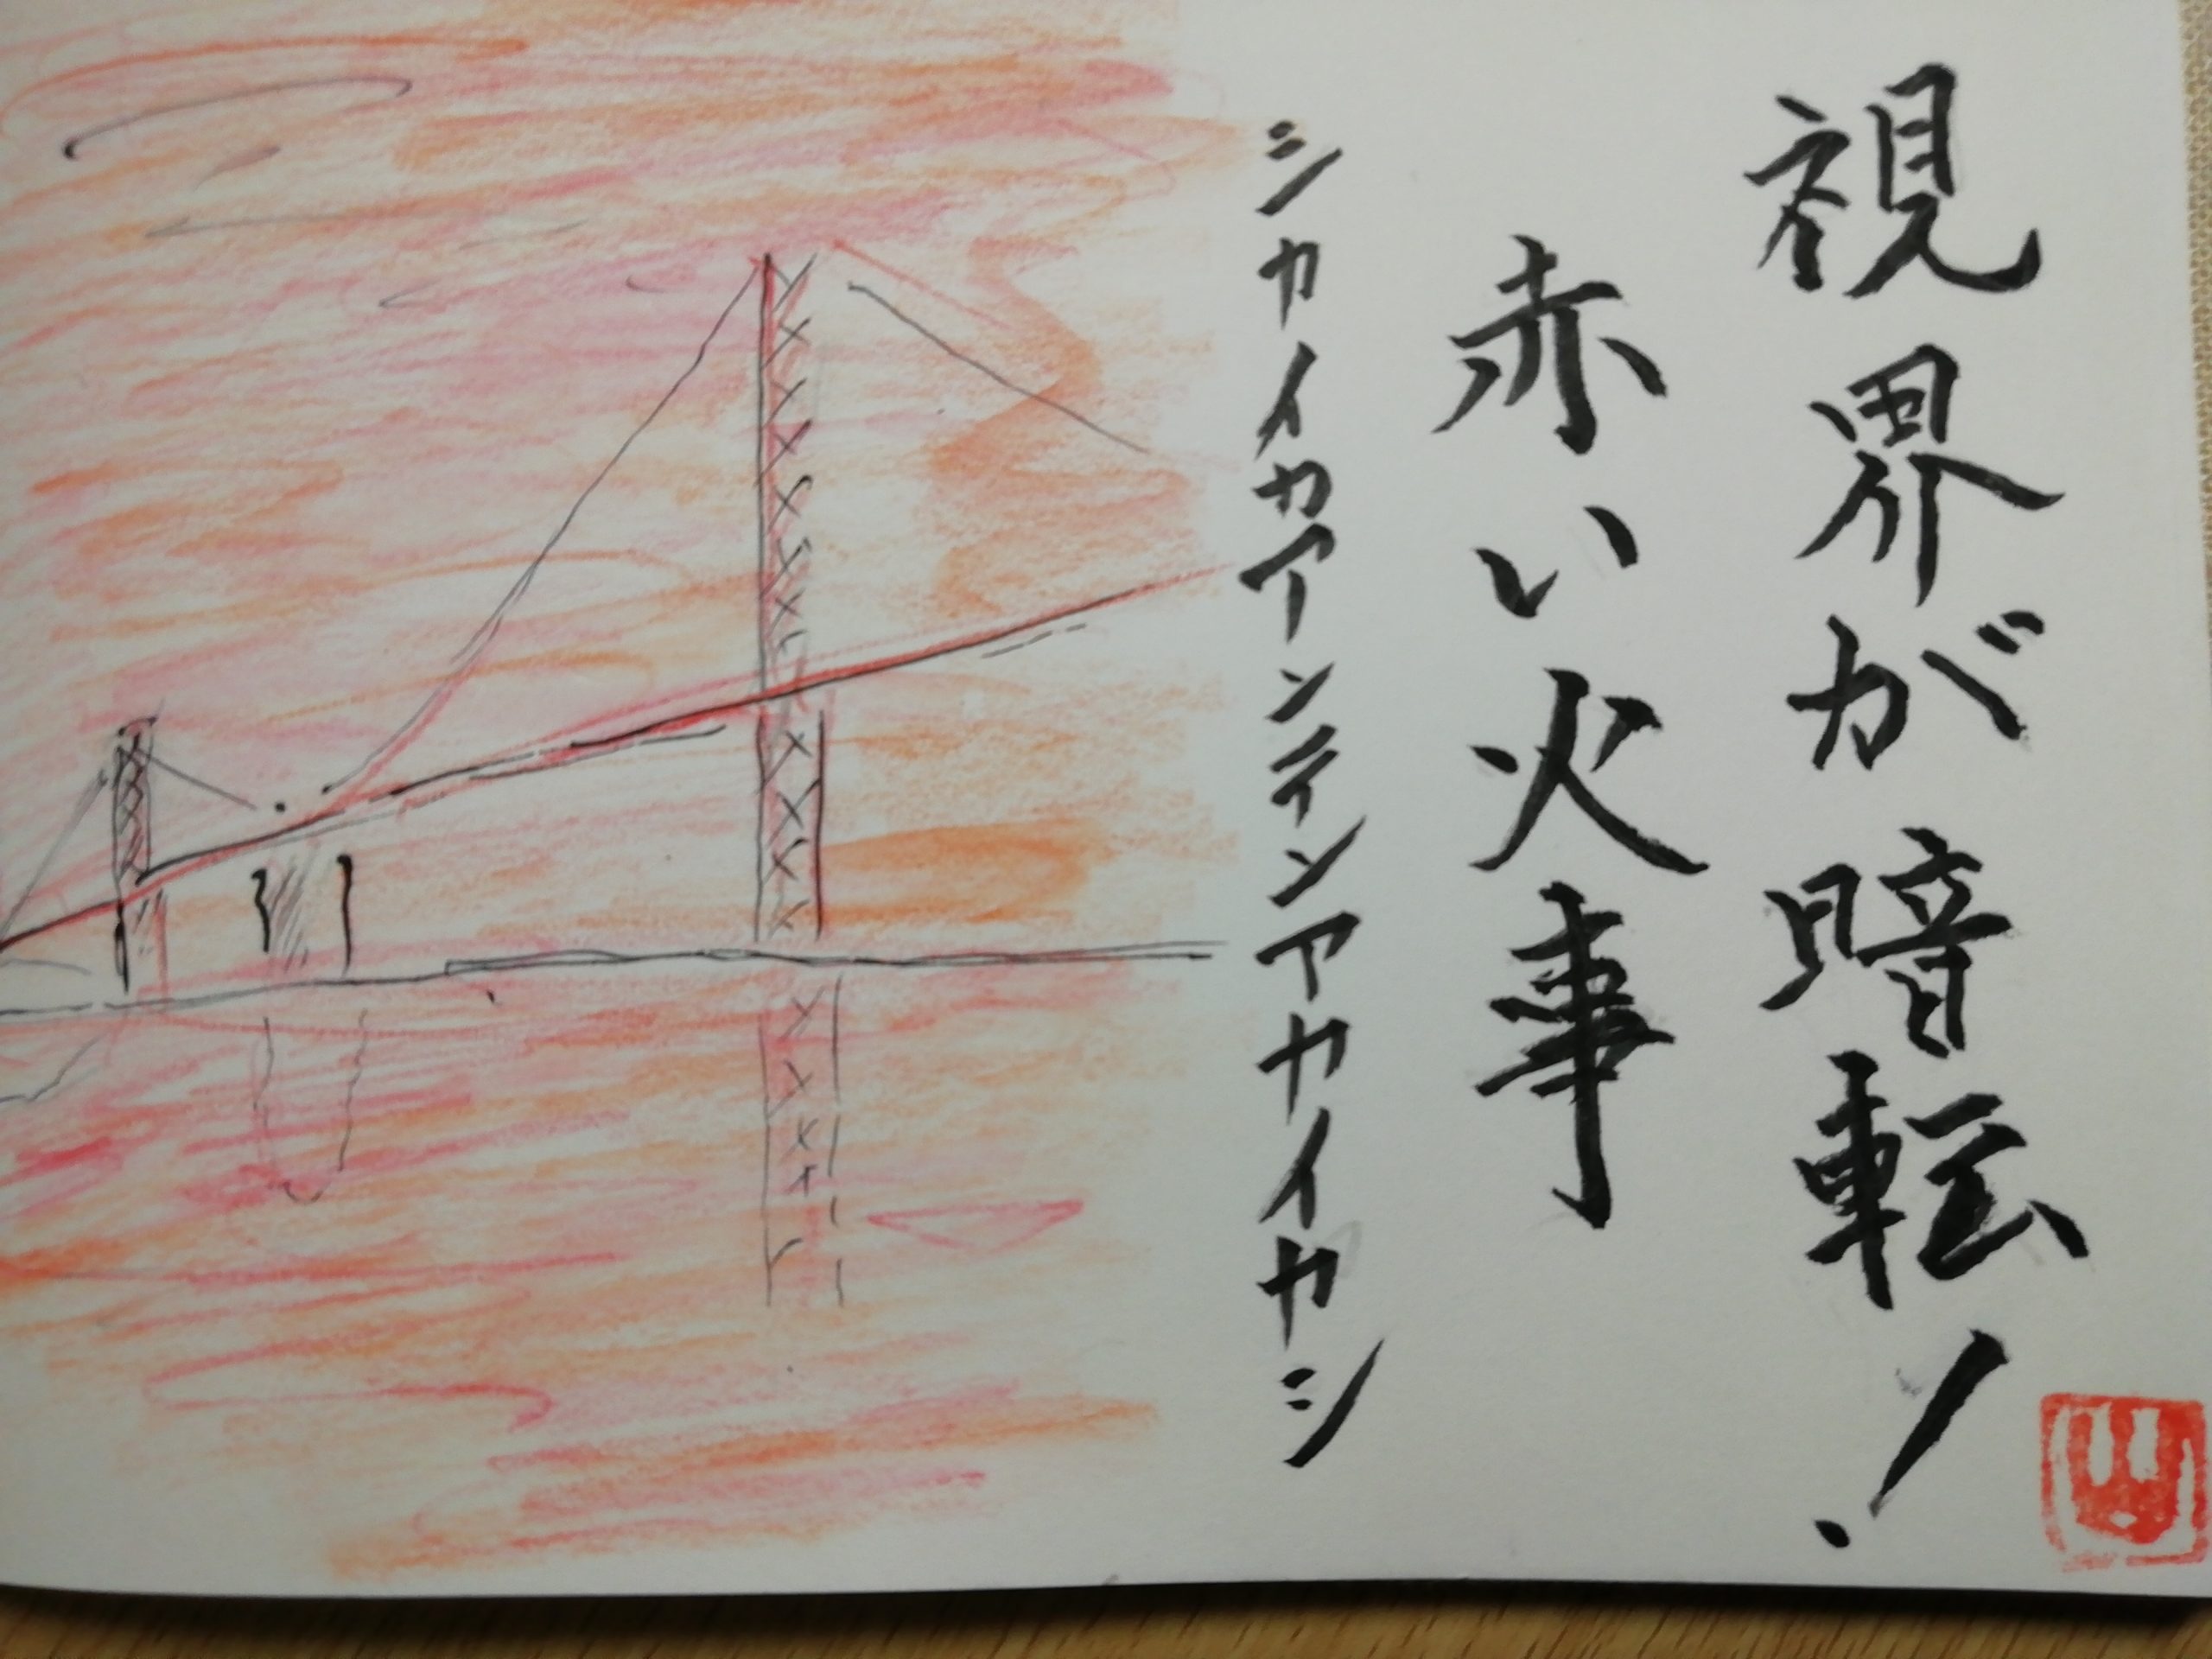 視界が暗転！
赤い火事
シカイカアンテンアカイカシ